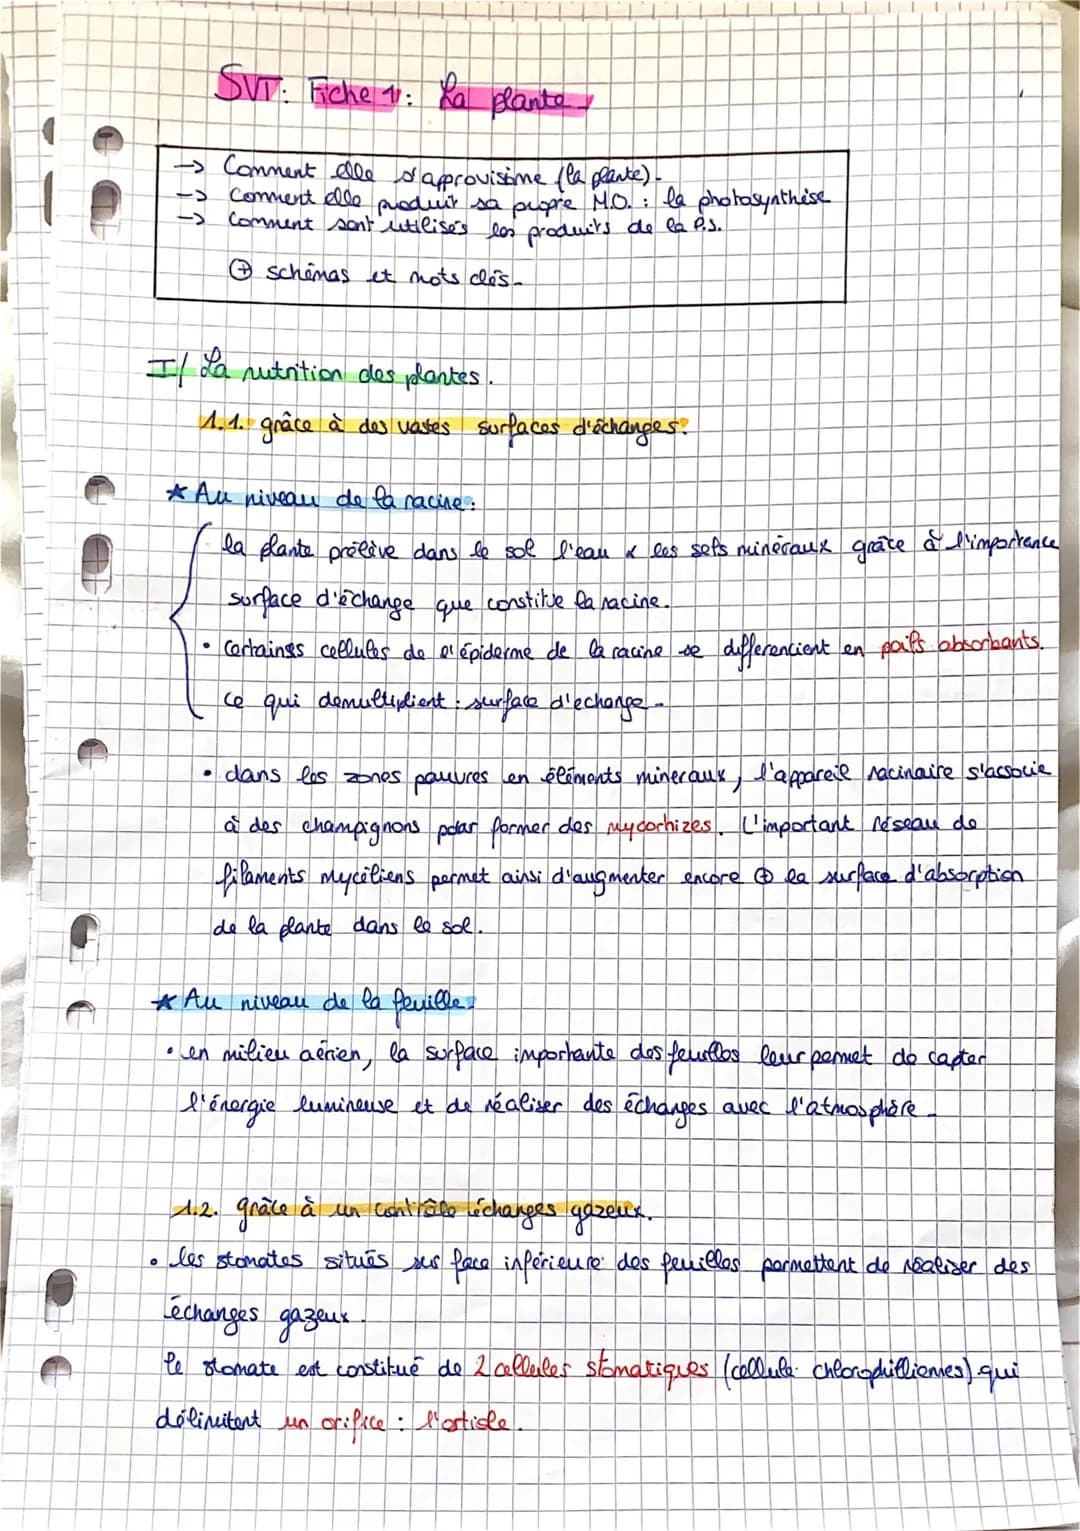 SVT: Fiche 1: La plante
→ Comment elle s'approvisionne (la plante).
→ Comment elle produit sa propre M.O. : la photosynthèse
→ Comment sont utilisés les produits de la P.S.
⊕ schémas et mots clés.
I/ La nutrition des plantes.
1.1. grâce à des vastes surfaces d'échanges:
* Au niveau de la racine:
la plante prélève dans le sol l'eau & les sels minéraux grâce à l'importance
surface d'échange que constitue la racine.
• Certaines cellules de l'épiderme de la racine se differencient en poils absorbants.
ce qui demultiplient : surface d'echange.
• dans les zones pauvres en éléments mineraux, l'appareil racinaire s'associe
à des champignons pour former des mycorhizes. L'important réseau de
filaments mycéliens permet ainsi d'augmenter encore ⊕ la surface d'absorption
de la plante dans le sol.
* Au niveau de la feuille:
• en milieu aérien, la surface importante des feuilles leur permet de capter
l'énergie lumineuse et de réaliser des échanges avec l'atmosphère.
1.2. grâce à un contrôle échanges gazeux.
• les stomates situés sur face inférieure des feuilles permettent de réaliser des
échanges gazeux.
le stomate est constitué de 2 cellules stomatiques (cellule chlorophilliennes) qui
délimitent un orifice : l'ostiole.